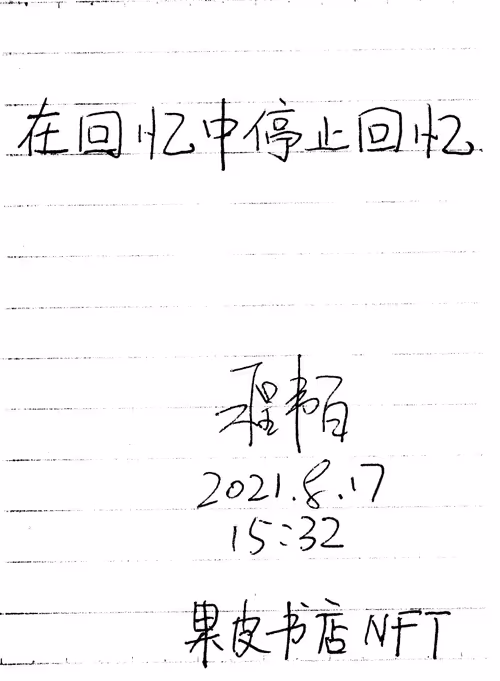 在回忆中停止回忆
程韦百
2021.8.17
15:32
果皮书店 NFT